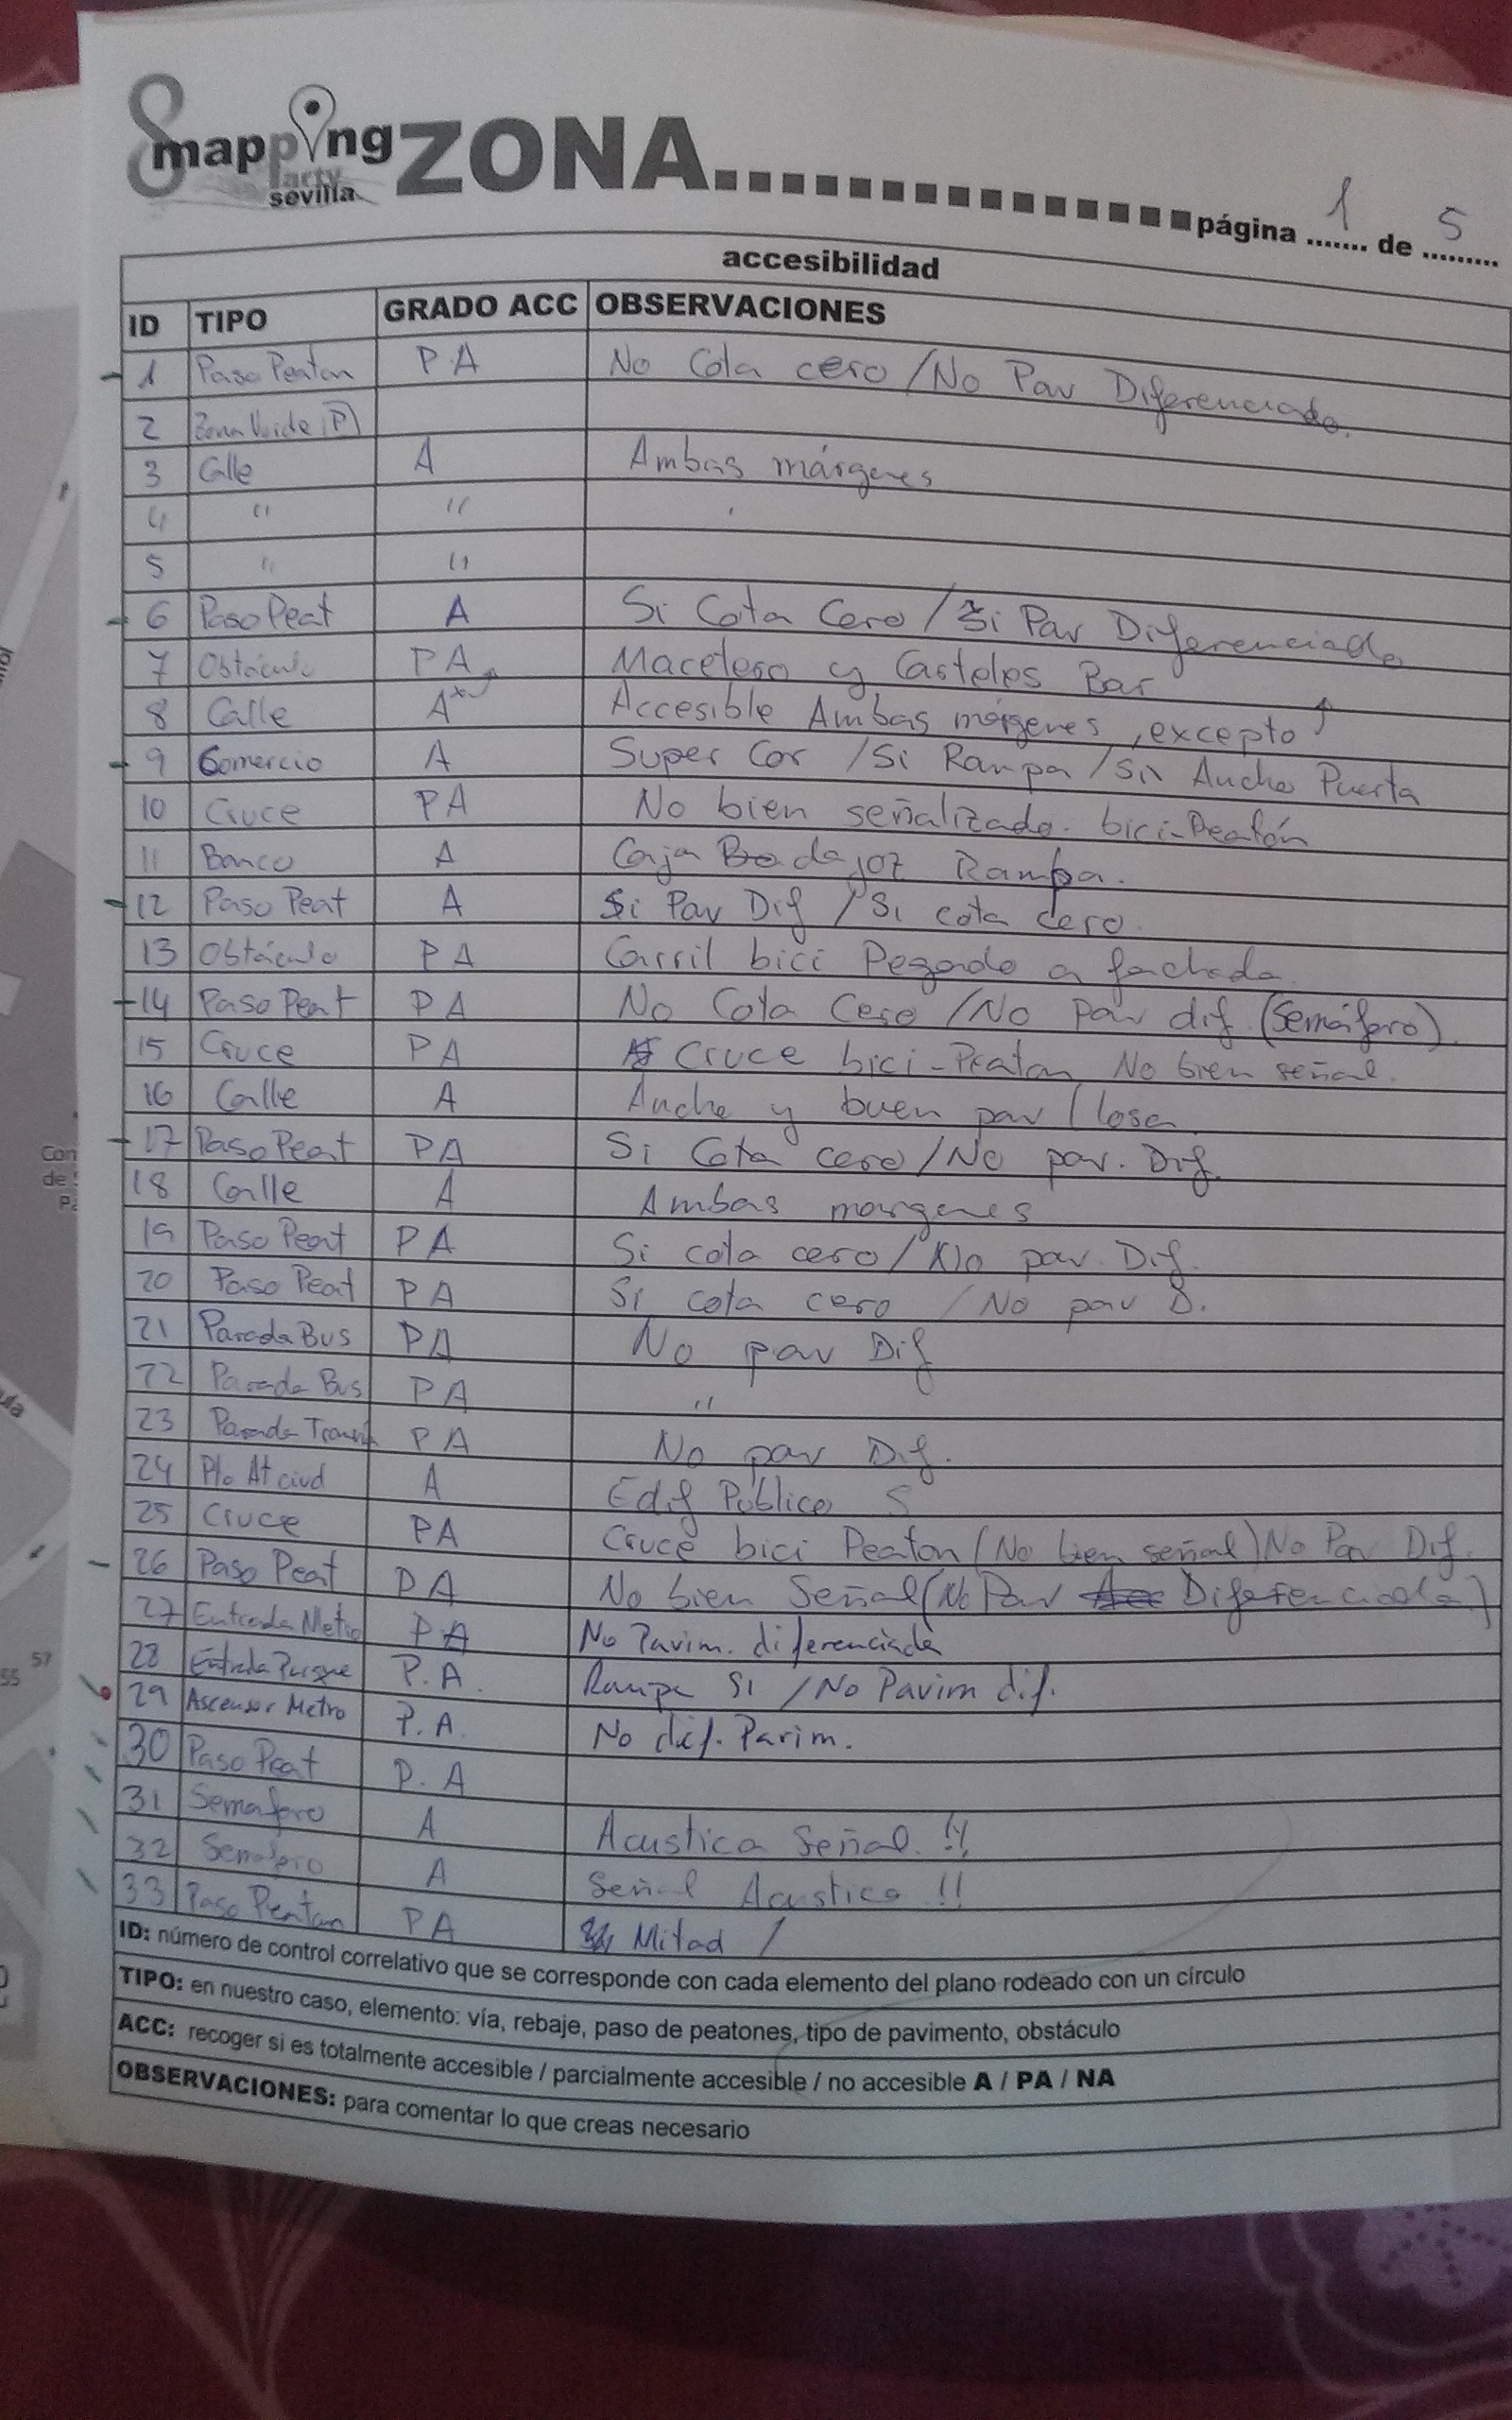 8 mapping party sevilla ZONA.................... página ....1... de ....5.....
accesibilidad
ID TIPO GRADO ACC OBSERVACIONES
1 Paso Peaton P.A No Cota cero / No Pav Diferenciado.
2 Zona Verde (P)
3 Calle A Ambas márgenes
4 " "
5 " "
6 Paso Peat A Si Cota Cero / Si Pav Diferenciado
7 Obstáculo PA Macetero y Carteles Bar
8 Calle A* Accesible Ambas márgenes, excepto ↑
9 Comercio A Super Cor / Si Rampa / Si Ancho Puerta
10 Cruce PA No bien señalizado. bici-Peatón
11 Banco A Caja Badajoz Rampa.
12 Paso Peat A Si Pav Dif / Si cota cero.
13 Obstáculo PA Carril bici Pegado a fachada
14 Paso Peat PA No Cota Cero / No pav dif. (Semáforo).
15 Cruce PA Cruce bici-Peaton No bien señal.
16 Calle A Ancho y buen pav / losa
17 Paso Peat PA Si Cota cero / No pav. Dif.
18 Calle A Ambas margenes
19 Paso Peat PA Si cota cero / No pav. Dif.
20 Paso Peat PA Si cota cero / No pav D.
21 Parada Bus PA No pav Dif
22 Parada Bus PA "
23 Parada Tranvía PA No pav Dif.
24 Pto At ciud A Edif Público S
25 Cruce PA Cruce bici Peaton (No bien señal) No Pav Dif.
26 Paso Peat PA No bien Señal (No Pav Diferenciado)
27 Entrada Metro PA No Pavim. diferenciado
28 Entrada Parque P.A. Rampa SI / No Pavim dif.
29 Ascensor Metro P.A. No dif. Pavim.
30 Paso Peat P.A
31 Semaforo A Acustica Señal. !!
32 Semaforo A Señal Acustica !!
33 Paso Peaton PA Mitad /
ID: número de control correlativo que se corresponde con cada elemento del plano rodeado con un círculo
TIPO: en nuestro caso, elemento: vía, rebaje, paso de peatones, tipo de pavimento, obstáculo
ACC: recoger si es totalmente accesible / parcialmente accesible / no accesible A / PA / NA
OBSERVACIONES: para comentar lo que creas necesario
57
55
Con
de